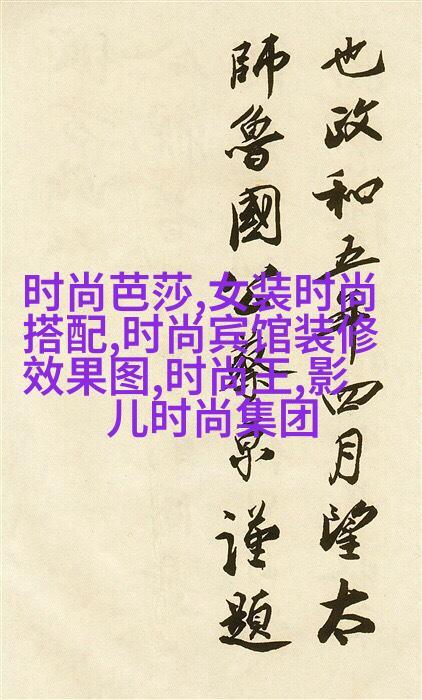 也政和五年四月望太
師魯國公蔡京謹題
时尚芭莎,女装时尚
搭配,时尚宾馆装修
效果图,时尚王,影
儿时尚集团